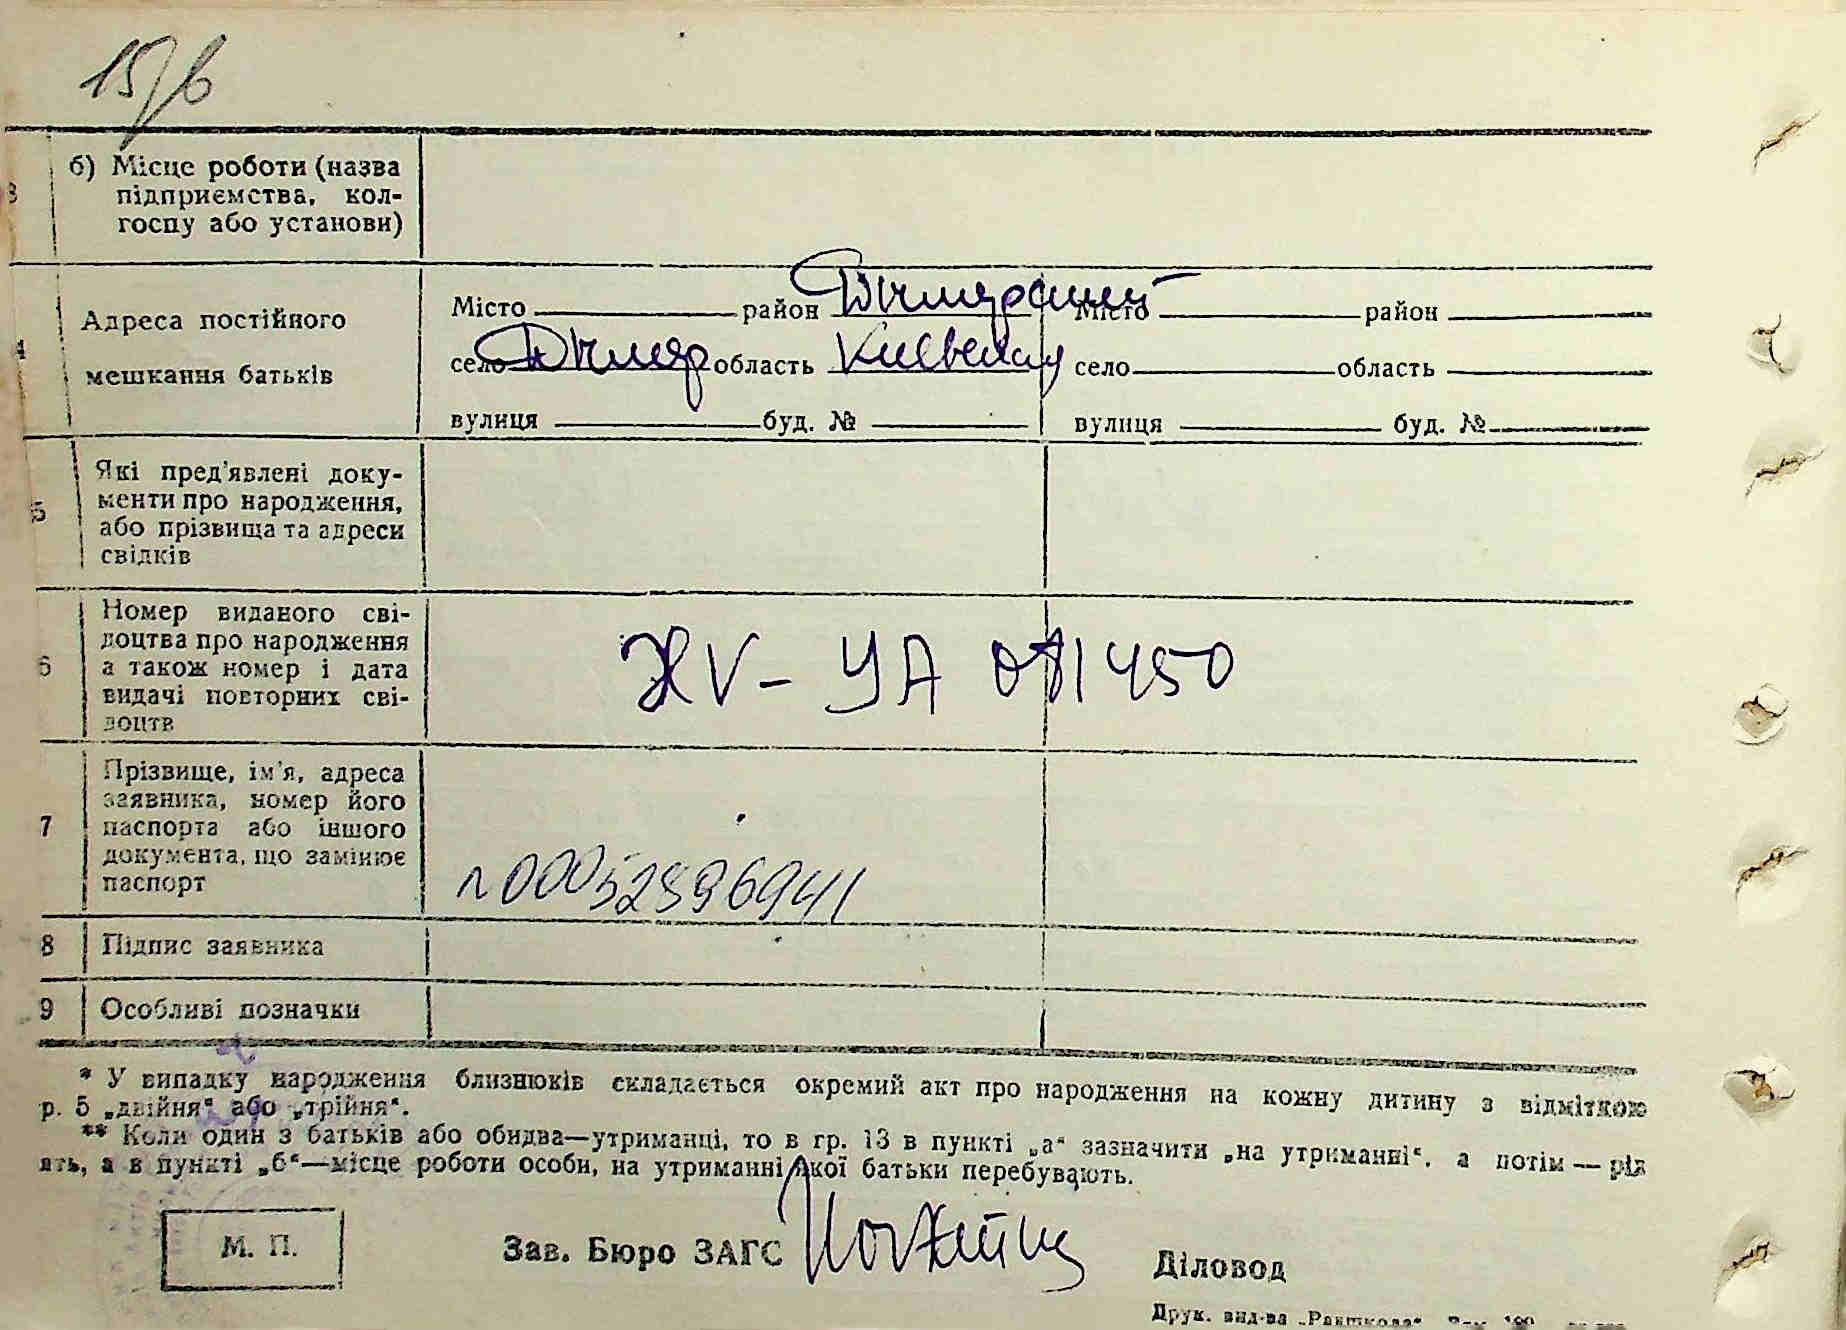 15/6
3 б) Місце роботи (назва
підприємства, кол-
госпу або установи)
4 Адреса постійного
мешкання батьків
Місто район Дымерский Місто район
село Дымер область Киевская село область
вулиця буд. № вулиця буд. №
5 Які пред'явлені доку-
менти про народження,
або прізвища та адреси
свідків
6 Номер виданого сві-
доцтва про народження
а також номер і дата
видачі повторних сві-
доцтв
XV - УА 071450
7 Прізвище, ім'я, адреса
заявника, номер його
паспорта або іншого
документа, що замінює
паспорт
n00052596941
8 Підпис заявника
9 Особливі позначки
* У випадку народження близнюків складається окремий акт про народження на кожну дитину з відміткою
р. 5 „двійня“ або „трійня“.
** Коли один з батьків або обидва—утриманці, то в гр. 13 в пункті „а“ зазначити „на утриманні“, а потім — рід
ять, а в пункті „б“—місце роботи особи, на утриманні якої батьки перебувають.
М. П.
Зав. Бюро ЗАГС
Діловод
Друк. вид-ва